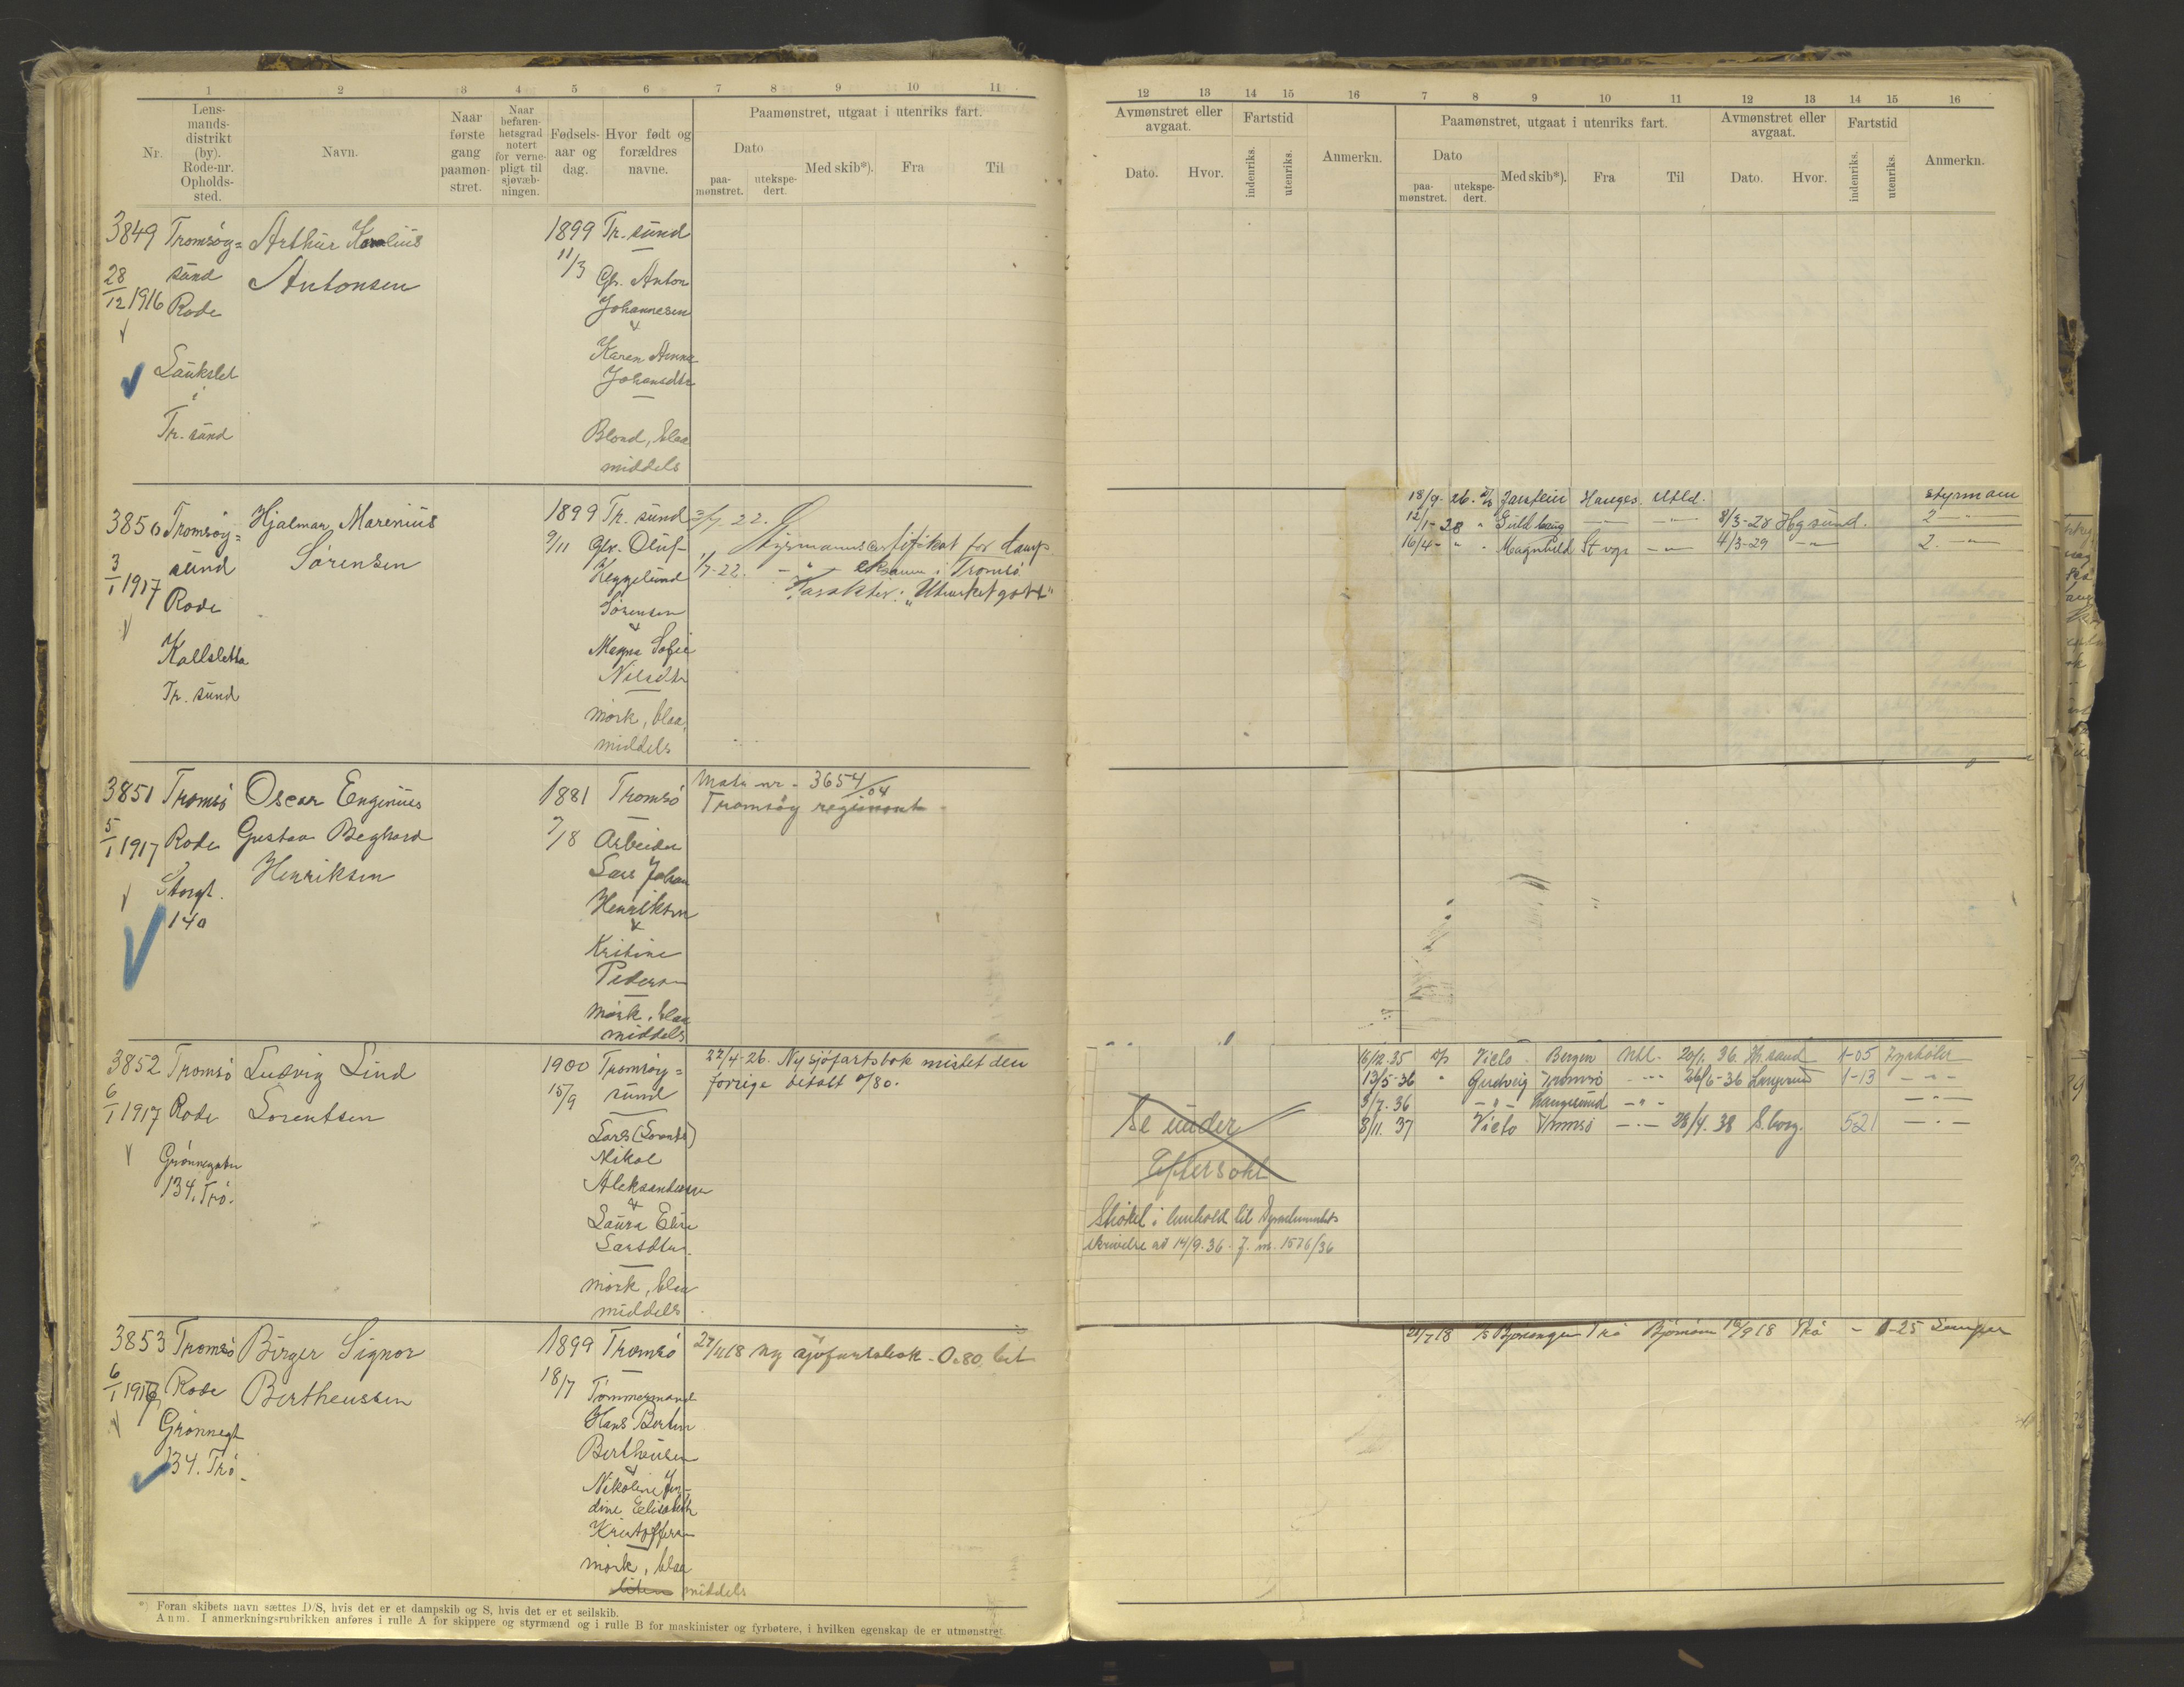 1 2 3 4 5 6 7 8 9 10 11
Nr.
Lens-
mands-
distrikt
(by).
Rode-nr.
Opholds-
sted.
Navn.
Naar
første
gang
paamøn-
stret.
Naar
befaren-
hetsgrad
notert
for verne-
pligt til
sjøvæb-
ningen.
Fødsels-
aar og
dag.
Hvor født og
forældres
navne.
Paamønstret, utgaat i utenriks fart.
Dato
paa-
mønstret.
utekspe-
dert.
Med skib*).
Fra
Til
3849 Tromsøy= Arthur Karolius 1899 Tr. sund
28/12 1916 sund Antonsen 11/3 Gbr. Anton
Rode Johannesen
&
Karen Anna
Laukslet Johansdtr
i
Tr. sund Blond, blaa
middels
3850 Tromsøy= Hjalmar Marenius 1899 Tr. sund 22.
3/1 1917 sund Sørensen 9/11 Gbr. Oluf Styrmannscertifikat for damp
Rode Heggelund 22. eksamen i Tromsø
Sørensen Karakter: "Utmerket godt"
&
Kallsletta Magna Sofie
Nilsdtr
Tr. sund
mørk, blaa
middels
3851 Tromsø Oscar Eugenius 1881 Tromsø Matr nr - 3654/04
Tromsøy regiment
5/1 1917 Rode Gustav Beghard 7/8 Arbeider
Henriksen Lars Johan
Storgt. Henriksen
140 &
Kristine
Pedersen
mørk, blaa
middels
3852 Tromsø Ludvig Lind 1900 Tromsøy= 22/4-26. Ny sjøfartsbok mistet den
6/1 1917 Rode Lorentsen 15/9 sund forrige betalt 0/80.
Lars (Lorents)
Grønnegaten Nikol
134. Trø. Aleksandersen
&
Laura Elise
Larsdtr.
mørk, blaa
middels
3853 Tromsø Birger Signor 1899 Tromsø 27/4 18 ny sjøfartsbok - 0.80 bet
6/1 1917 Rode Bertheussen 18/7 Tømmermand
Grønnegt Hans Bertin
134. Trø. Bertheusen
&
Nikoline Jen-
dine Elisabeth
Kristoffersen
mørk, blaa
liten middels
*) Foran skibets navn sættes D/S, hvis det er et dampskib og S, hvis det er et seilskib.
Anm. I anmerkningsrubrikken anføres i rulle A for skippere og styrmænd og i rulle B for maskinister og fyrbøtere, i hvilken egenskap de er utmønstret.
12 13 14 15 16 7 8 9 10 11 12 13 14 15 16
Avmønstret eller
avgaat.
Dato.
Hvor.
Fartstid
indenriks.
utenriks.
Anmerkn.
Paamønstret, utgaat i utenriks fart.
Dato
paa-
mønstret.
utekspe-
dert.
Med skib*).
Fra
Til
Avmønstret eller
avgaat.
Dato.
Hvor.
Fartstid
indenriks.
utenriks.
Anmerkn.
18/9-26. D/S Jarstein Hauges. Utld. styrmann
12/1-28 " Guldhaug -"- -"- 8/3-28 Hg sund. 2 -"-
16/4- " " Magnhild St vgr -"- 4/3-29 -"- 2. -"-
16/12.35 D/S Vielo Bergen Utl. 20/1. 36. Kr. sand 1-05 Fyrbøter
13/5-36 " Gudveig Tromsø -"- 26/6-36 Langesund 1-13 -"-
3/7. 36 -"- Langesund -"- -"-
8/11. 37 Vielo Tromsø -"- 28/4. 38 S. borg. 521 -"-
Se under
Eftersøkt
Strøket i henhold til
skrivelse av 14/9.36. J. nr. 1576/36
21/7 18 Trø Bjørnøen 18/9 18 Trø - 1-25 Lemper